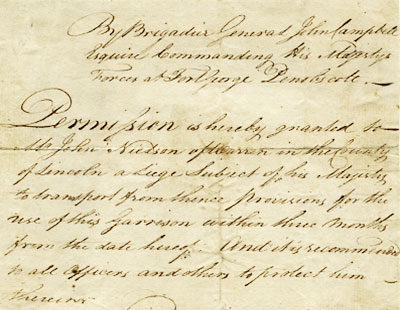 By Brigadier General John Campbell
Esquire Commanding His Majestys
Forces at Fort George Penobscote.
Permission is hereby granted to
Mr John Nielson of Warren in the County
of Lincoln a Liege Subject of his Majesty
to transport from thence provisions for the
use of this Garrison within three months
from the date hereof. And it is recommended
to all Officers and others to protect him
therein